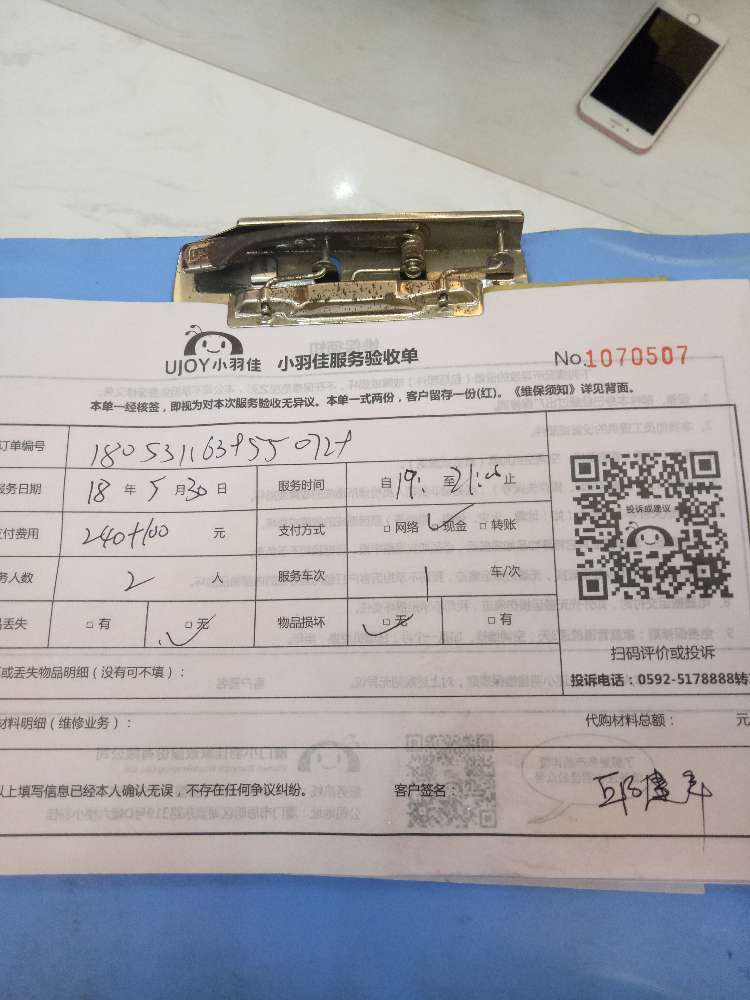 UJOY小羽佳 小羽佳服务验收单 No.1070507
本单一经核签，即视为对本次服务验收无异议。本单一式两份，客户留存一份(红)。《维保须知》详见背面。
订单编号
服务日期 18 年 5 月 30 日 服务时间 自 19: 至 21: 止
付费用 240+100 元 支付方式 □ 网络 □ 现金 □ 转账
务人数 2 人 服务车次 1 车/次
丢失 □ 有 □ 无 物品损坏 □ 无 □ 有
投诉或建议
扫码评价或投诉
投诉电话：0592-5178888转
或丢失物品明细（没有可不填）：
材料明细（维修业务）： 代购材料总额： 元
以上填写信息已经本人确认无误，不存在任何争议纠纷。 客户签名：